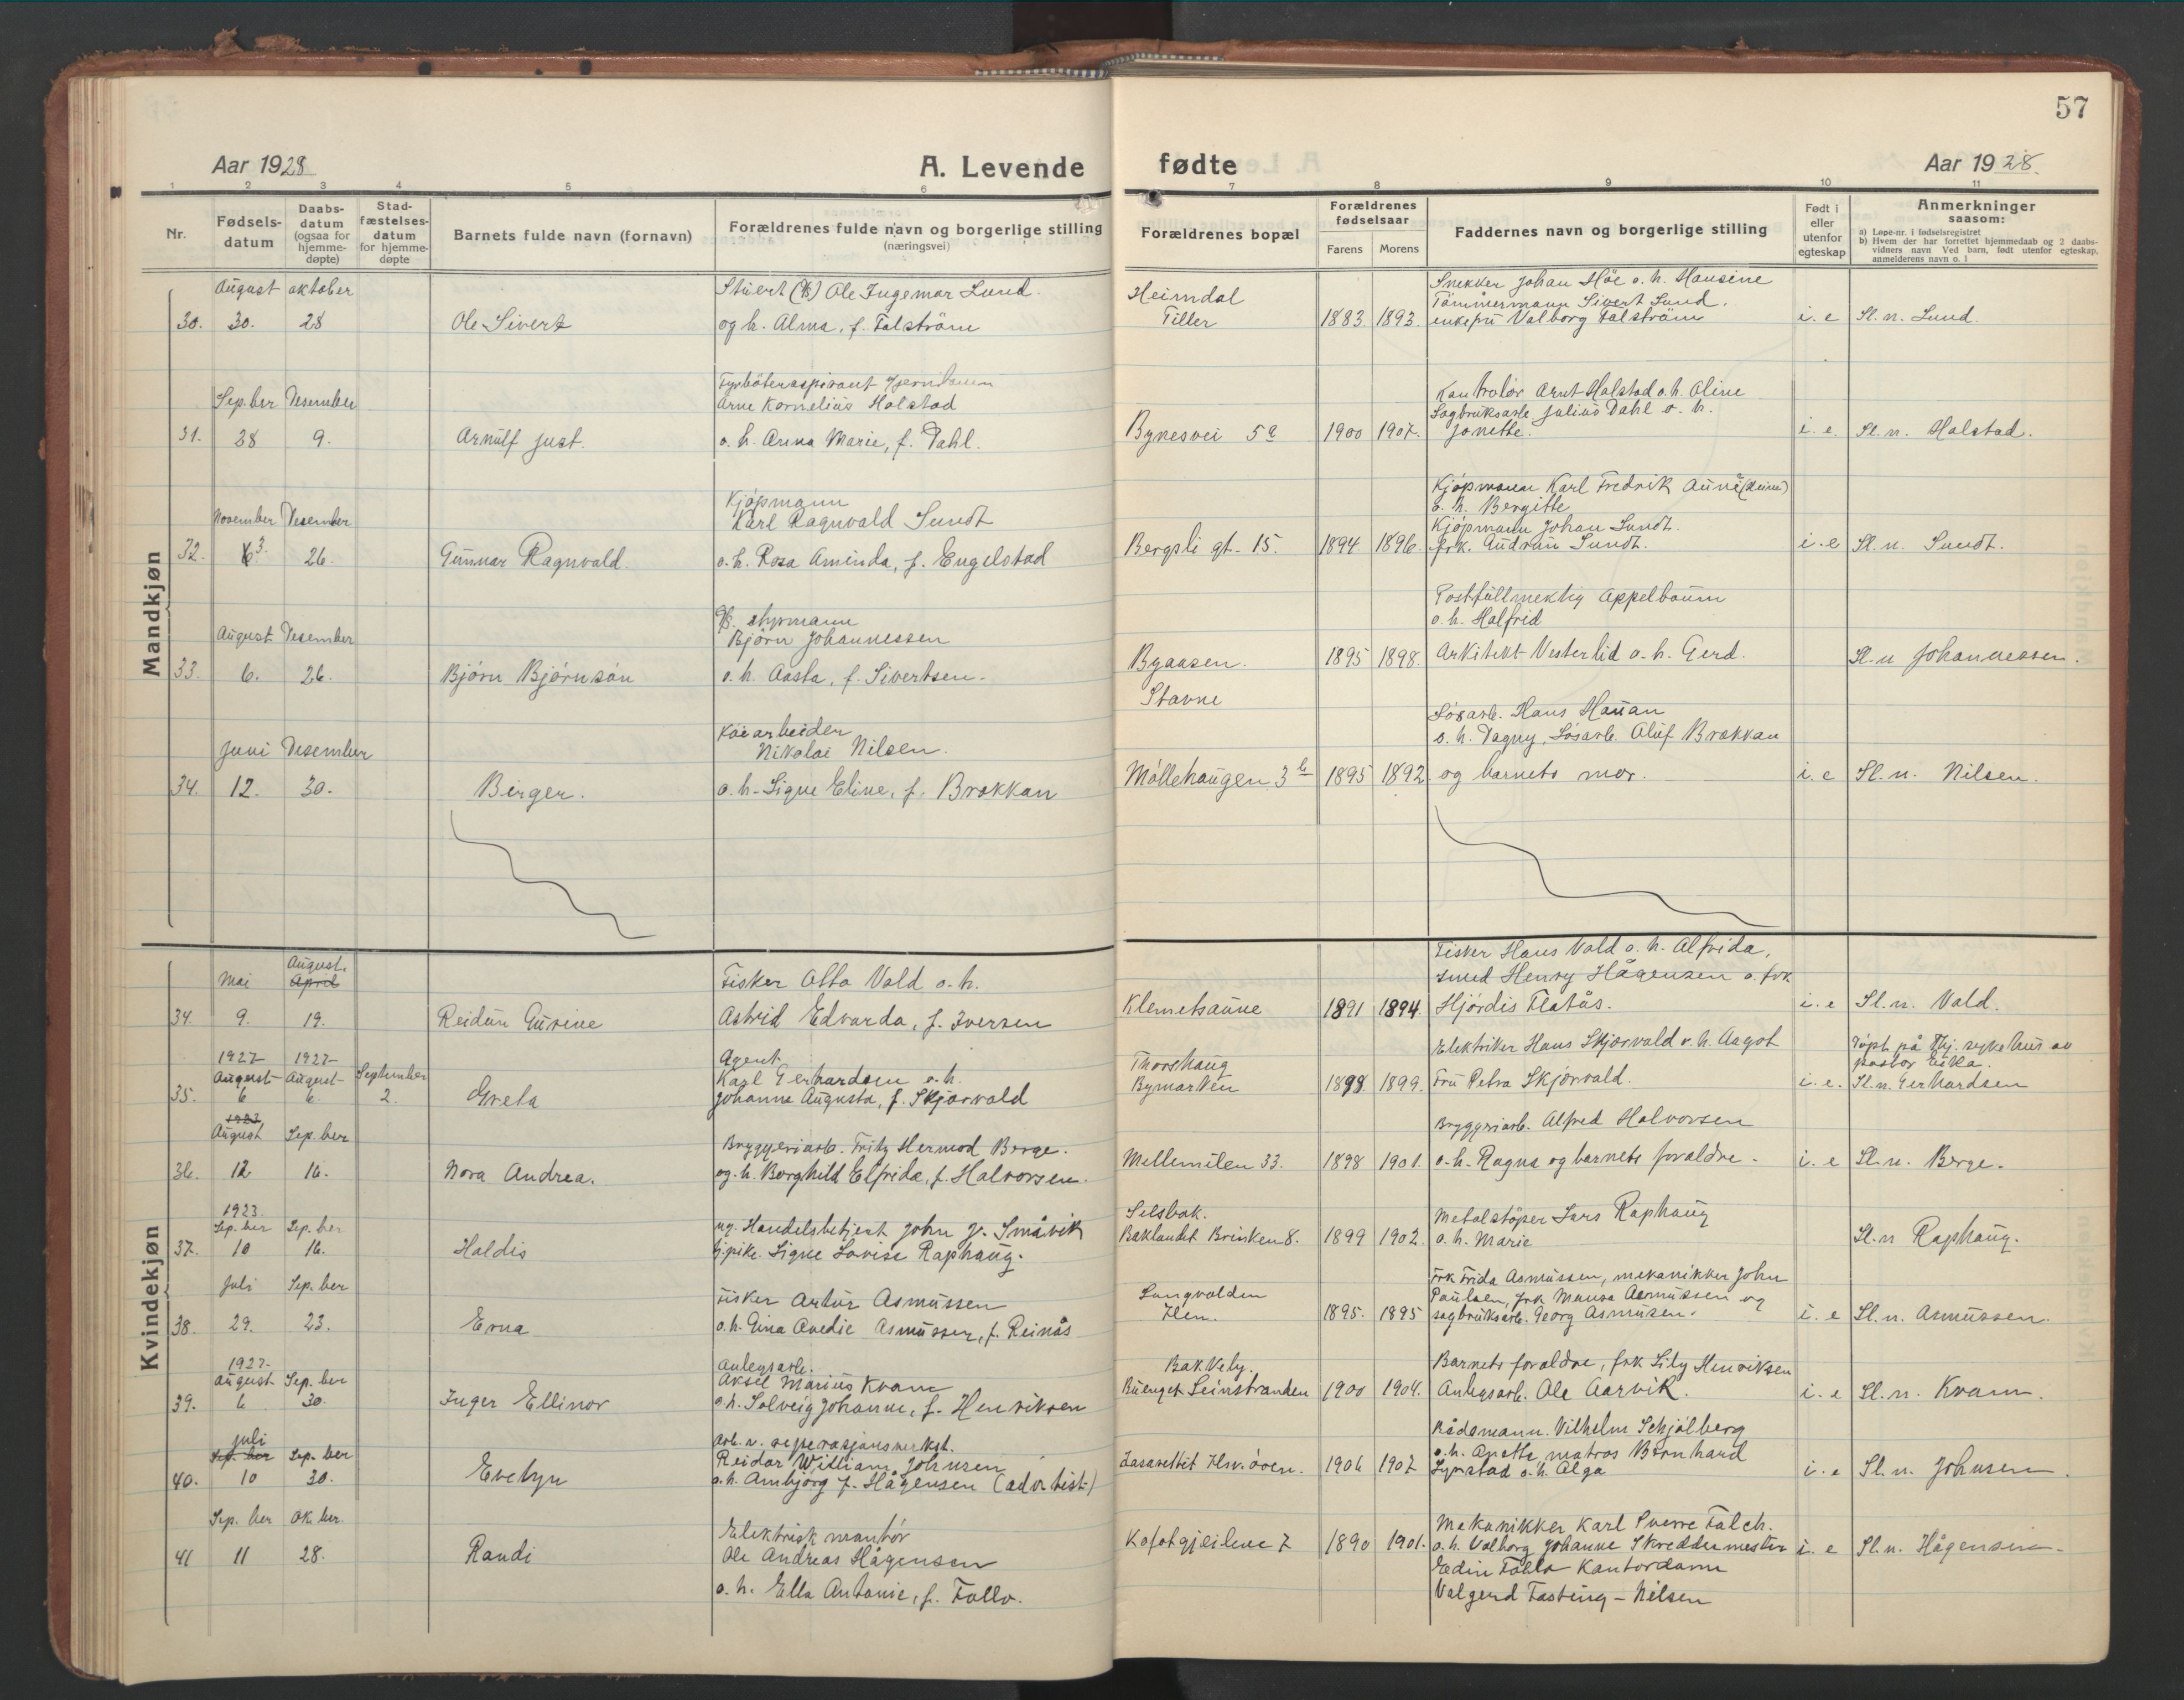 57
Aar 1928
A. Levende
fødte
Aar 1928.
1 2 3 4 5 6 7 8 9 10 11
Nr.
Fødsels-datum
Daabs-datum (ogsaa for hjemme-døpte)
Stad-fæstelses-datum for hjemme-døpte
Barnets fulde navn (fornavn)
Forældrenes fulde navn og borgerlige stilling
(næringsvei)
Forældrenes bopæl
Forældrenes fødselsaar
Farens Morens
Faddernes navn og borgerlige stilling
Født i eller utenfor egteskap
Anmerkninger
saasom:
a) Løpe-nr. i fødselsregistret
b) Hvem der har forrettet hjemmedaab og 2 daabs-
vidners navn Ved barn, født utenfor egteskap,
anmelderens navn o. l
Mandkjøn
August oktober
30. 30. 28
Ole Sivert
Stuert Ole Ingemar Lund.
og h. Alma, f. Falström
Heimdal
Tiller
1883. 1893.
Snekker Johan Höe o. h. Hansine
Tömmermann Sivert Lund.
enkefru Valborg Falström
i. e
Sl. n. Lund.
Sep.ber Desember
31. 28 9.
Arnulf Just.
Fyrböteraspirant Jernbanen
Arne Kornelius Halstad
o. h. Anna Marie, f. Dahl.
Bynesvei 5a
1900 1907.
Kontrolör Arnt Halstad o. h. Oline
Sagbruksarb Julius Dahl o. h.
Jonette.
i. e.
Sl. n. Halstad.
November Desember
32. 3. 26.
Gunnar Ragnvald.
Kjöpmann
Karl Ragnvald Sundt
o. h. Rosa Aminda, f. Engelstad
Bergsli gt. 15.
1894 1896.
Kjöpmann Karl Fredrik Aune
o. h. Bergitte
Kjöpmann Johan Sundt.
frk. Gudrun Sundt.
i. e
Sl. n. Sundt.
August Desember
33. 6. 26.
Bjørn Bjørnsøn
styrmann
Björn Johannessen
o. h. Aasta, f. Sivertsen.
Byaasen.
Stavne
1895 1898.
Postfullmektig Appelbaum
o. h. Halfrid
Arkitekt Vesterlid o. h. Gerd.
Sl. n Johannessen.
Juni Desember
34. 12. 30.
Birger.
Kaiarbeider
Nikolai Nilsen.
o. h. Signe Eline, f. Brækkan
Möllehaugen 3b
1895 1892
Løsarb. Hans Hauan
o. h. Dagny, Løsarb. Oluf Brækkan
og barnets mor.
i. e
Sl. n. Nilsen.
Kvindekjøn
Mai August. April
34. 9. 19.
Reidun Gurine
Fisker Otto Vald o. h.
Astrid Edvarda, f. Iversen
Klemetsaune
1891 1894.
Fisker Hans Vald o. h. Alfrida,
smed Henry Hågensen o. frk
Hjördis Flatås.
i. e
Sl. n. Vald.
1927 1927
August August September
35. 6 6. 2.
Greta
Agent
Karl Gerhardsen o. h.
Johanna Augusta, f. Skjærvald
Thorshaug
Bymarken
1898. 1899.
Elektriker Hans Skjærvald o. h. Aagot
Fru Petra Skjærvald.
i. e.
Döpt på sykehus av
pastor
Sl. n. Gerhardsen
1927
August Sep.ber
36. 12 16.
Nora Andrea.
Bryggeriarb. Fritz Hermod Berge.
og h. Borghild Elfrida, f. Halvorsen.
Mellemilen 33.
1898 1901.
Bryggeriarb. Alfred Halvorsen
o. h. Ragna og barnets foraldre.
i. e
Sl. n. Berge.
1923.
Sep.ber Sep.ber
37. 10 16.
Haldis
ug. Handelsbetjent John J. Småvik
tj.pike. Signe Lovise Raphaug.
Selsbak.
Baklandet Brinken 8.
1899 1902.
Metalstöper Lars Raphaug
o. h. Marie
Sl. n Raphaug.
Juli Sep.ber
38. 29. 23.
Erna
Fisker Artur Asmussen
o. h. Gina Avedie Asmussen, f. Reinås
Langvolden
Ilen.
1895. 1895
Frk Frida Asmussen, mekanikker John
Paulsen, frk Asmussen og
sagbruksarb. Georg Asmussen.
i. e
Sl. n. Asmussen.
1927.
August Sep.ber
39. 6 30.
Inger Ellinor
Anlegsarb.
Aksel Marius Kvam
o. h. Solveig Johanne, f. Henriksen
Leinstranden
1900 1904.
Barnets foraldre, frk Lily Henriksen
Anlegsarb. Ole Aarvik.
i. e
Sl. n. Kvam.
Juli Sep.ber Sep.ber
40. 10 30.
Evelyn
Arb. v. reperasjonsverkst.
Reidar William Johnsen
o. h. Ambjörg f. Hågensen (advbtist)
Lasarettet Ilsvören.
1906 1907
Rådsmann. Vilhelm Schjölberg
o. h. Anette, matros Bernhard
o. h. Alga
i. e
Sl. n. Johnsen.
Sep. ber Ok. ber.
41 11 28.
Randi
Elektrisk montör
Ole Andreas Hågensen
o. h. Ella Antonie, f. Follo.
Kofotgjeilene 7
1890 1901.
Mekanikker Karl Sverre Falch.
o. h. Valborg Johanne Skreddermester
Edin Follo Kontordame
Valgerd Fasting-Nilsen
i. e
Sl. n. Hågensen.